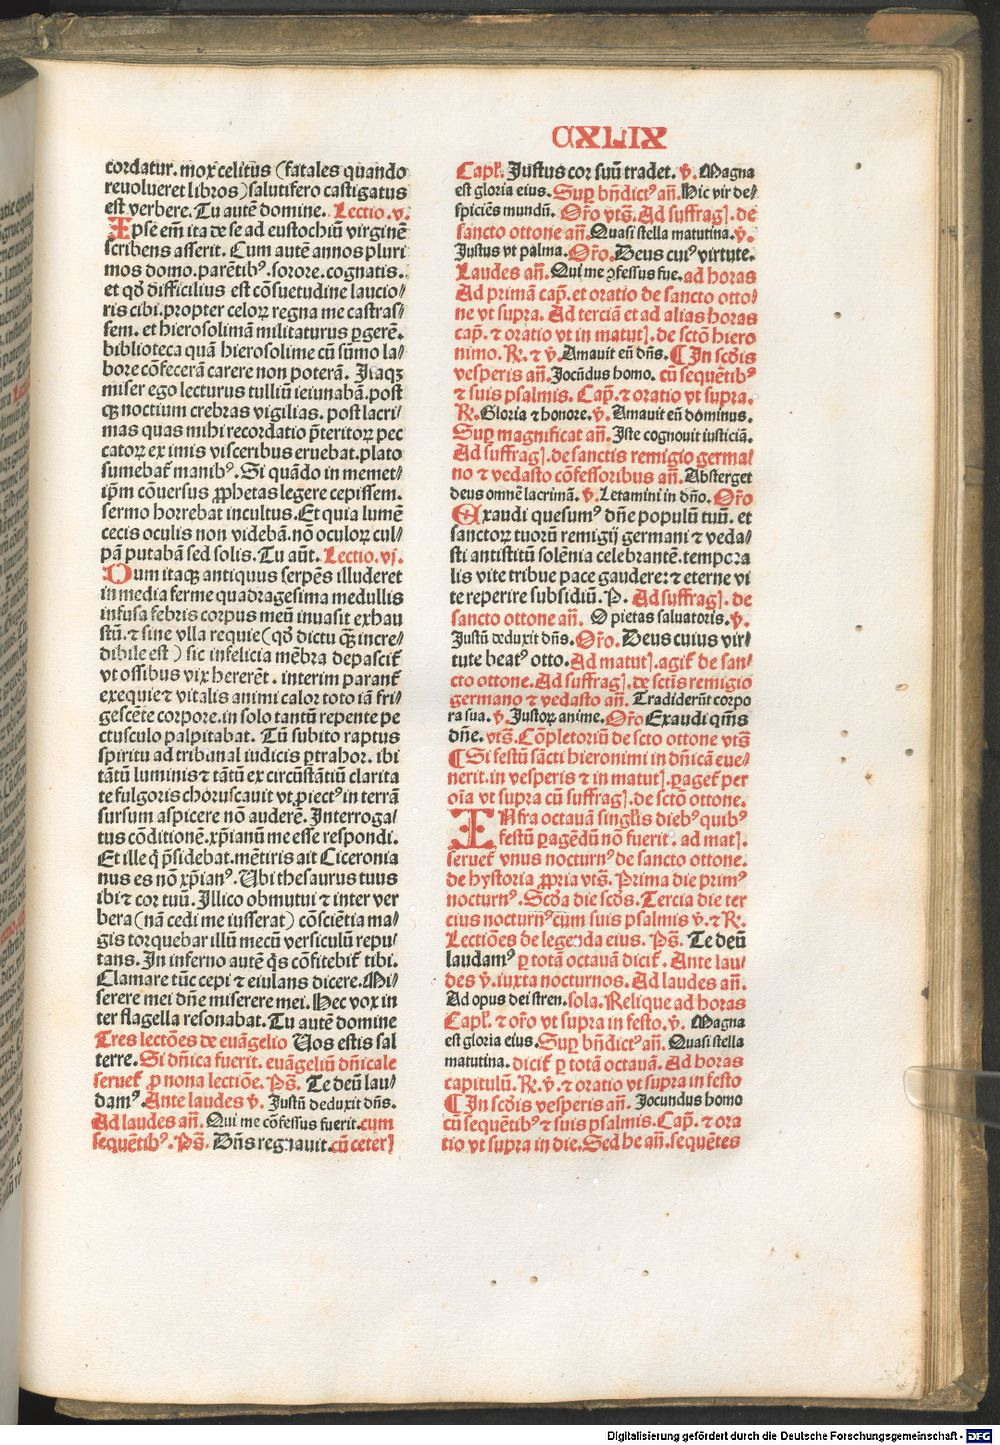 CXLIX
cordatur. mox celitus (fatales quando
reuolueret libros) salutifero castigatus
est verbere. Tu autē domine. Lectio. v.
Ipse em̄ ita de se ad eustochiū virginē
scribens asserit. Cum autē annos pluri
mos domo. parētibꝰ. sorore. cognatis.
et qđ difficilius est cōsuetudine laucio⸗
ris cibi. propter celoꝝ regna me castras⸗
sem. et hierosolimā militaturus ꝑgerē.
biblioteca quā hierosolime cū sūmo la⸗
bore cōfecerā carere non poterā. Itaqꝫ
miser ego lecturus tulliū ieiunabā. post
qꝫ noctium crebras vigilias. post lacri⸗
mas quas mihi recordatio p̄teritoꝝ pec
catoꝝ ex imis visceribus eruebat. plato
sumebat᷑ manibꝰ. Si quādo in memet⸗
ip̄m cōuersus ꝓphetas legere cepissem.
sermo horrebat incultus. Et quia lumē
cecis oculis non videbā. nō oculoꝝ cul⸗
pā putabā sed solis. Tu aūt. Lectio. vj.
Dum itaqꝫ antiquus serpēs illuderet
in media ferme quadragesima medullis
infusa febris corpus meū inuasit exhau
stū. ⁊ sine vlla requie (qđ dictu qꝫ incre⸗
dibile est) sic infelicia mēbra depascit᷑
vt ossibus vix hererēt. interim parant᷑
exequie ⁊ vitalis animi calor toto iā fri⸗
gescēte corpore. in solo tantū repente pe
ctusculo palpitabat. Tū subito raptus
spiritu ad tribunal iudicis ꝑtrahor. ibi
tātū luminis ⁊ tātū ex circūstātiū clarita
te fulgoris choruscauit vt ꝓiectꝰ in terrā
sursum aspicere nō auderē. Interroga⸗
tus cōditionē. xp̄ianū me esse respondi.
Et ille q̇ p̄sidebat. mētiris ait Ciceronia
nus es nō xp̄ianꝰ. Ubi thesaurus tuus
ibi ⁊ cor tuū. Illico obmutui ⁊ inter ver
bera (nā cedi me iusserat) cōscientia ma⸗
gis torquebar illū mecū versiculū repu⸗
tans. In inferno autē q̇s cōfitebit᷑ tibi.
Clamare tūc cepi ⁊ eiulans dicere. Mi⸗
serere mei dn̄e miserere mei. Hec vox in
ter flagella resonabat. Tu autē domine
Tres lectōes de euāgelio Uos estis sal
terre. Si dn̄ica fuerit. euāgeliū dn̄icale
seruet᷑ ꝓ nona lectiōe. Ps̄. Te deū lau⸗
damꝰ. Ante laudes v̄. Justū deduxit dn̄s.
Ad laudes an̄. Qui me cōfessus fuerit. cum
sequētibꝰ. Ps̄. Dn̄s regnauit. cū ceterꝭ
Capl᷑. Justus cor suū tradet. v̄. Magna
est gloria eius. Suꝑ bn̄dictꝰ an̄. Hic vir de⸗
spiciēs mundū. Or̄o vts̄. Ad suffragꝭ. de
sancto ottone an̄. Quasi stella matutina. v̄.
Justus vt palma. Or̄o. Deus cuiꝰ virtute.
Laudes an̄. Qui me ꝯfessus fue. ad horas
Ad primā cap̄. et oratio de sancto otto⸗
ne vt supra. Ad terciā et ad alias horas
cap̄. ⁊ oratio vt in matutꝭ. de sctō hiero
nimo. R. ⁊ v̄. Amauit eū dn̄s. ¶ In scd̄is
vesperis an̄. Jocūdus homo. cū sequētibꝰ
⁊ suis psalmis. Cap̄. ⁊ oratio vt supra.
R. Gloria ⁊ honore. v̄. Amauit eū dominus.
Suꝑ magnificat an̄. Iste cognouit iusticiā.
Ad suffragꝭ. de sanctis remigio germa⸗
no ⁊ vedasto cōfessoribus an̄. Absterget
deus omnē lacrimā. v̄. Letamini in dn̄o. Or̄o
Exaudi quesumꝰ dn̄e populū tuū. et
sanctoꝝ tuorū remigij germani ⁊ veda⸗
sti antistitū solēnia celebrantē. tempora
lis vite tribue pace gaudere: ⁊ eterne vi
te reperire subsidiū. P. Ad suffragꝭ. de
sancto ottone an̄. O pietas saluatoris. v̄.
Justū deduxit dn̄s. Or̄o. Deus cuius vir⸗
tute beatꝰ otto. Ad matutꝭ. agit᷑ de san⸗
cto ottone. Ad suffragꝭ. de sctīs remigio
germano ⁊ vedasto an̄. Tradiderūt corpo
ra sua. v̄. Justoꝝ anime. Or̄o Exaudi qm̄s
dn̄e. vts̄. Cōpletoriū de scto ottone vts̄
¶ Si festū sācti hieronimi in dn̄icā eue⸗
nerit. in vesperis ⁊ in matutꝭ. ꝑaget᷑ per
oīa vt supra cū suffragꝭ. de sctō ottone.
Infra octauā singl̄is diebꝰ quibꝰ
festū ꝑagēdū nō fuerit. ad matꝭ.
seruet᷑ vnus nocturnꝰ de sancto ottone.
de hystoria ꝓpria vts̄. Prima die primꝰ
nocturnꝰ. Scd̄a die scd̄s. Tercia die ter
cius nocturnꝰ cum suis psalmis v̄. ⁊ R.
Lectiōes de legenda eius. Ps̄. Te deū
laudamꝰ ꝑ totā octauā dicit᷑. Ante lau⸗
des v̄. iuxta nocturnos. Ad laudes an̄.
Ad opus dei stren. sola. Relique ad horas
Capl᷑. ⁊ or̄o vt supra in festo. v̄. Magna
est gloria eius. Suꝑ bn̄dictꝰ an̄. Quasi stella
matutina. dicit᷑ ꝑ totā octauā. Ad horas
capitulū. R. v̄. ⁊ oratio vt supra in festo
¶ In scd̄is vesperis an̄. Jocundus homo
cū sequētibꝰ ⁊ suis psalmis. Cap̄. ⁊ ora
tio vt supra in die. Sed he an̄. sequētes
Digitalisierung gefördert durch die Deutsche Forschungsgemeinschaft - DFG